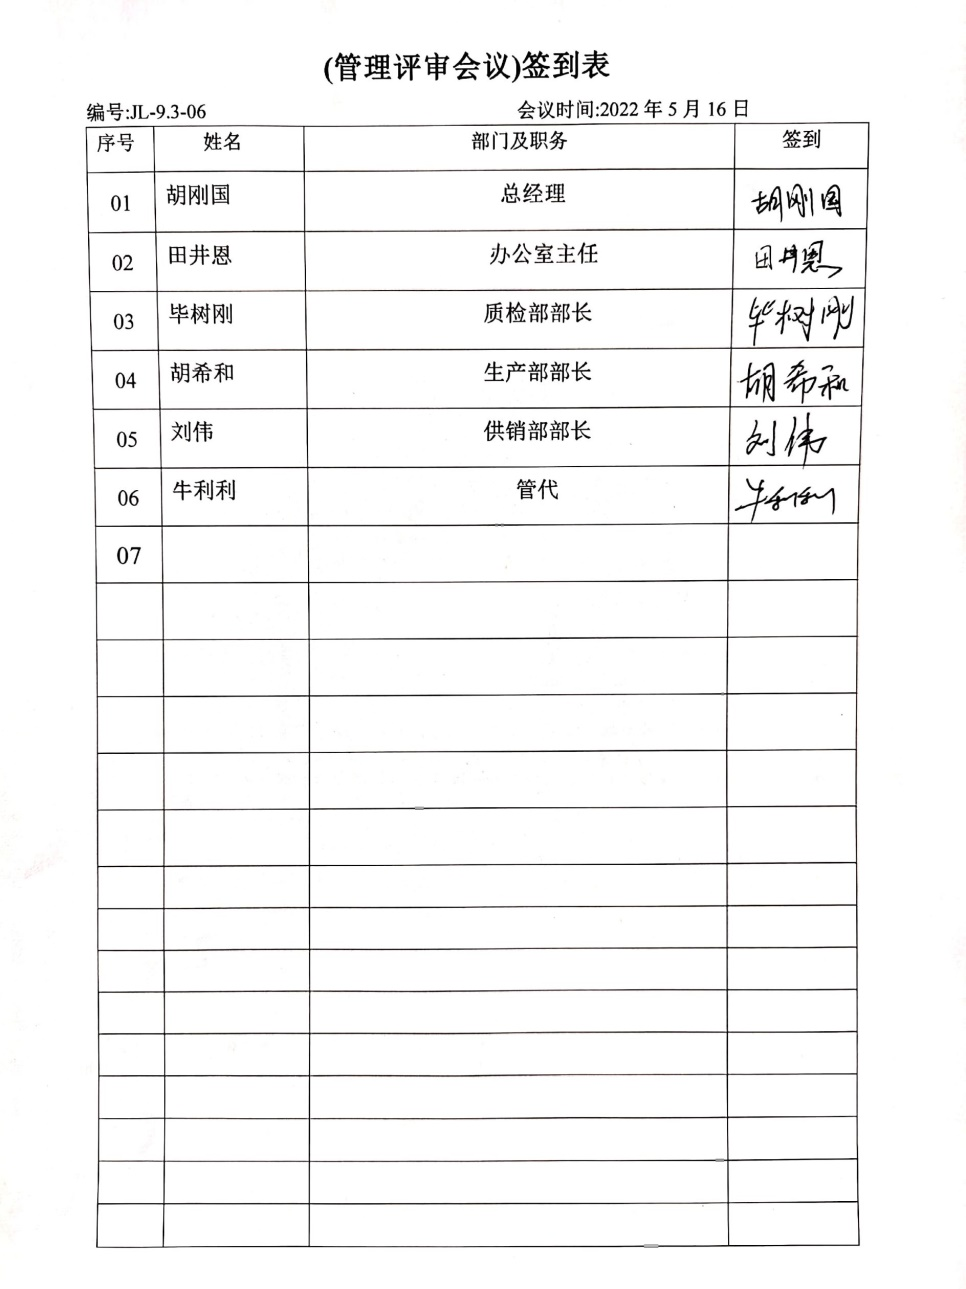 (管理评审会议)签到表
编号:JL-9.3-06 会议时间:2022 年 5 月 16 日
序号 姓名 部门及职务 签到
01 胡刚国 总经理 胡刚国
02 田井恩 办公室主任 田井恩
03 毕树刚 质检部部长 毕树刚
04 胡希和 生产部部长 胡希和
05 刘伟 供销部部长 刘伟
06 牛利利 管代 牛利利
07